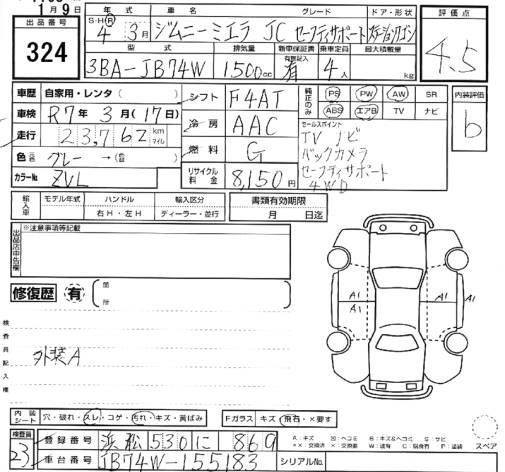 1月9日
出品番号
324
年式 車名 グレード ドア・形状
S・H・R 4年 3月 ジムニーシエラ JC セーフティサポート ステーションワゴン
型式 排気量 新車保証書 有無記入 乗車定員 最大積載量
3BA-JB74W 1500cc 有 4人 kg
評価点
4.5
車歴 自家用・レンタ( )
車検 R7年3月(17日)
走行 23,762 km マイル
色 グレー → ( )
カラーNo. ZVL
シフト F4AT
冷房 AAC
燃料 G
リサイクル料金 8,150円
純正のみ PS PW AW SR
ABS エアB TV ナビ
内装評価
b
セールスポイント
TVナビ
バックカメラ
セーフティサポート
4WD
輸入車 モデル年式 ハンドル 右H・左H 輸入区分 ディーラー・並行
書類有効期限
月 日迄
出品店申告欄
※注意事項等記載
修復歴 有 箇所
検査員記入欄
外装A
A1 A1 A1
内装シート 穴・破れ・スレ・コゲ・汚れ・キズ・黄ばみ
Fガラス キズ・飛石・×要す
検査員
23
登録番号 浜松 530 に 869
車台番号 JB74W-155183
シリアルNo.
A:キズ U:ヘコミ B:キズ&ヘコミ S:サビ
××:交換済 ×:要交換 W:波有 C:腐食有 P:塗装
スペア